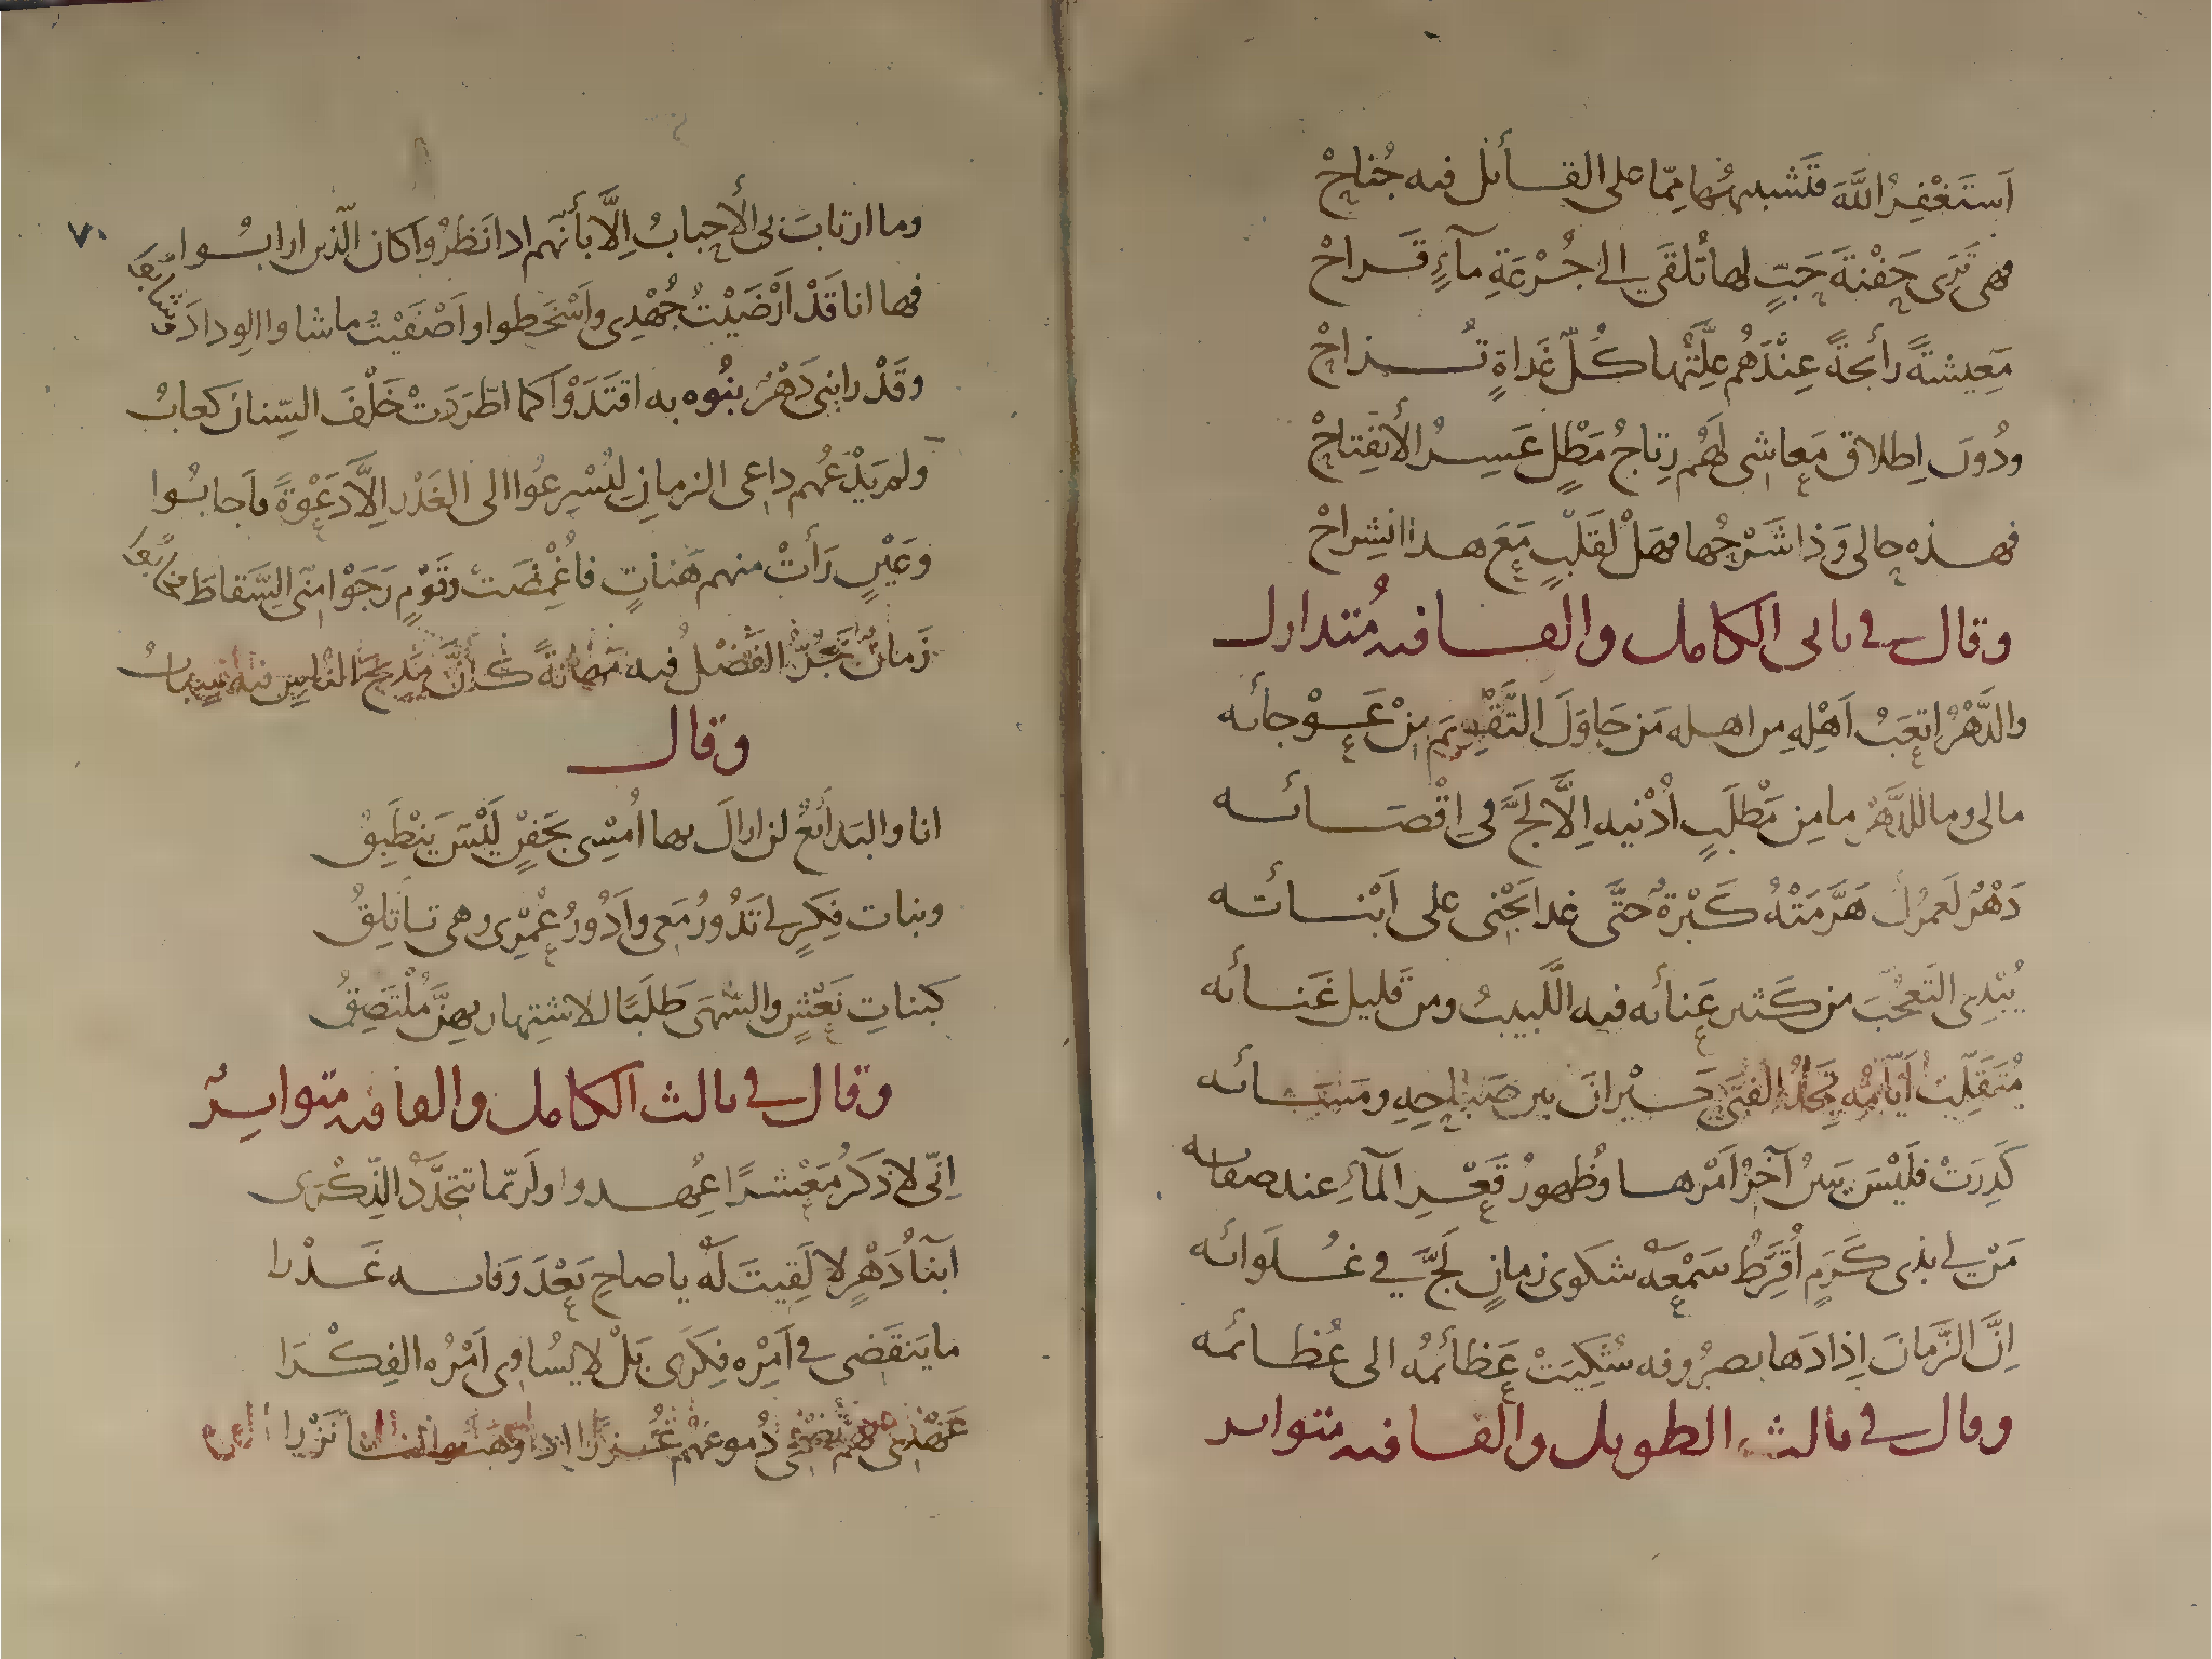 اَستَغْفِرُ اللَّهَ فتَشبيهُها مِمّا على القائل فيه جُناحْ
فهى تَرَى جَفْنَةَ جَبَتٍ لها تُلقَى الى جُرْعَةِ مآءٍ قَراحْ
مَعِيشةً رائجةً عِنْدَهُم عِلَّتُها كُلّ غَداةٍ تُزاحْ
ودُونَ اِطلاق مَعاشى لَهُم رِتاجُ مَطْلٍ عَسِرُ الأنفِتاحْ
فهذه حالى وَذا شَرْحُها فهَلْ لقَلْبٍ مَعَ هذا انشِراحْ
وقال فى ثانى الكامل والقافيه مُتدارك
والدَّهْرُ اتعَبُ اَهْلِهِ من اهله مَن حاوَلَ التَّقْوِيمَ مِنْ عَوْجائه
مالى وما للدَّهْرِ ما مِن مَطْلَبٍ اُدْنيه اِلَّا لَجَّ فى اِقْصَائه
دَهْرٌ لَعمرُكَ هَرَّمَتْهُ كَبْرَةٌ حتَّى غدا يَجْنى على اَبْنائه
يُبْدِى التَعجُّبَ من كَثير عَنائه فيه اللَّبيبُ ومن قليل غَنائه
مُتَقَلِّبٌ اَيّامُه تَجِدُ الفتَى حَيْرانَ بين صَباحِهِ ومَسَائه
كَدِرَتْ فلَيْسَ يَبينُ آخرُ اَمْرها وظُهورُ قَعْرِ المآءِ عند صفائه
مَنْ لى بذى كَرَمٍ اُقَرِّطُ سَمْعَهُ شكوى زمانٍ لَجَّ فى غُلَوائه
اِنَّ الزَّمانَ اِذا دَها بصرُوفه شُكِيَتْ عَظائمُه الى عُظمائه
وقال فى ثالث الطويل والقافيه متواتر
٧٠
وما ارتابَ بى الأحبابُ اِلَّا بأنّهم اذا نَظرُوا كان الّذين ارابُوا
فها انا قَدْ اَرْضَيْتُ جُهْدِى واَسْخَطوا واَصْفَيْتُ ما شاوا الوِدادَ
وقَدْ رابنى دَهْرٌ بنُوه به اقتَدَوْا كما اطّرَدَتْ خَلْفَ السِّنان كعابُ
ولم يَدْعُهم داعى الزمانِ لِيُسْرِعُوا الى الغَدْر اِلَّا دَعْوَةً فاَجابُوا
وعَيْنٍ رَأتْ منهم هَناتٍ فاُغْمِضَتْ وقَوْمٍ رَجَوْا مِنّى السِّقاطَ
زَمانٌ يَجُرُّ الفَضْلُ فيه مَهانةً كاَنَّ مَديحَ النَّاسِ فيه سِبابُ
وقال
انا والبَدائعُ لن ازالَ بها اُمسِى بجَفْنٍ لَيْسَ يَنْطَبِقُ
وبنات فِكرٍ لى تَدُورُ مَعى واَدُورُ عُمْرِى وهى تاتلِقُ
كبناتِ نَعْشٍ والسُّهَى طَلَبًا للاشتِهار بهنَّ مُلْتَصِقُ
وقال فى ثالث الكامل والقافيه متواتِرٌ
اِنّى لاَذكرُ مَعْشرًا عُهدوا ولَربّما تتجَدَّدُ الذِّكْرَى
اَبنآءُ دَهْرٍ لا لَقِيتَ لَهُ يا صاحِ بَعْدَ وَفائه غَدْرا
ما يَنقَضى فى اَمْرِه فِكَرى بَلْ لا يُساوِى اَمْرُه الفِكْرَا